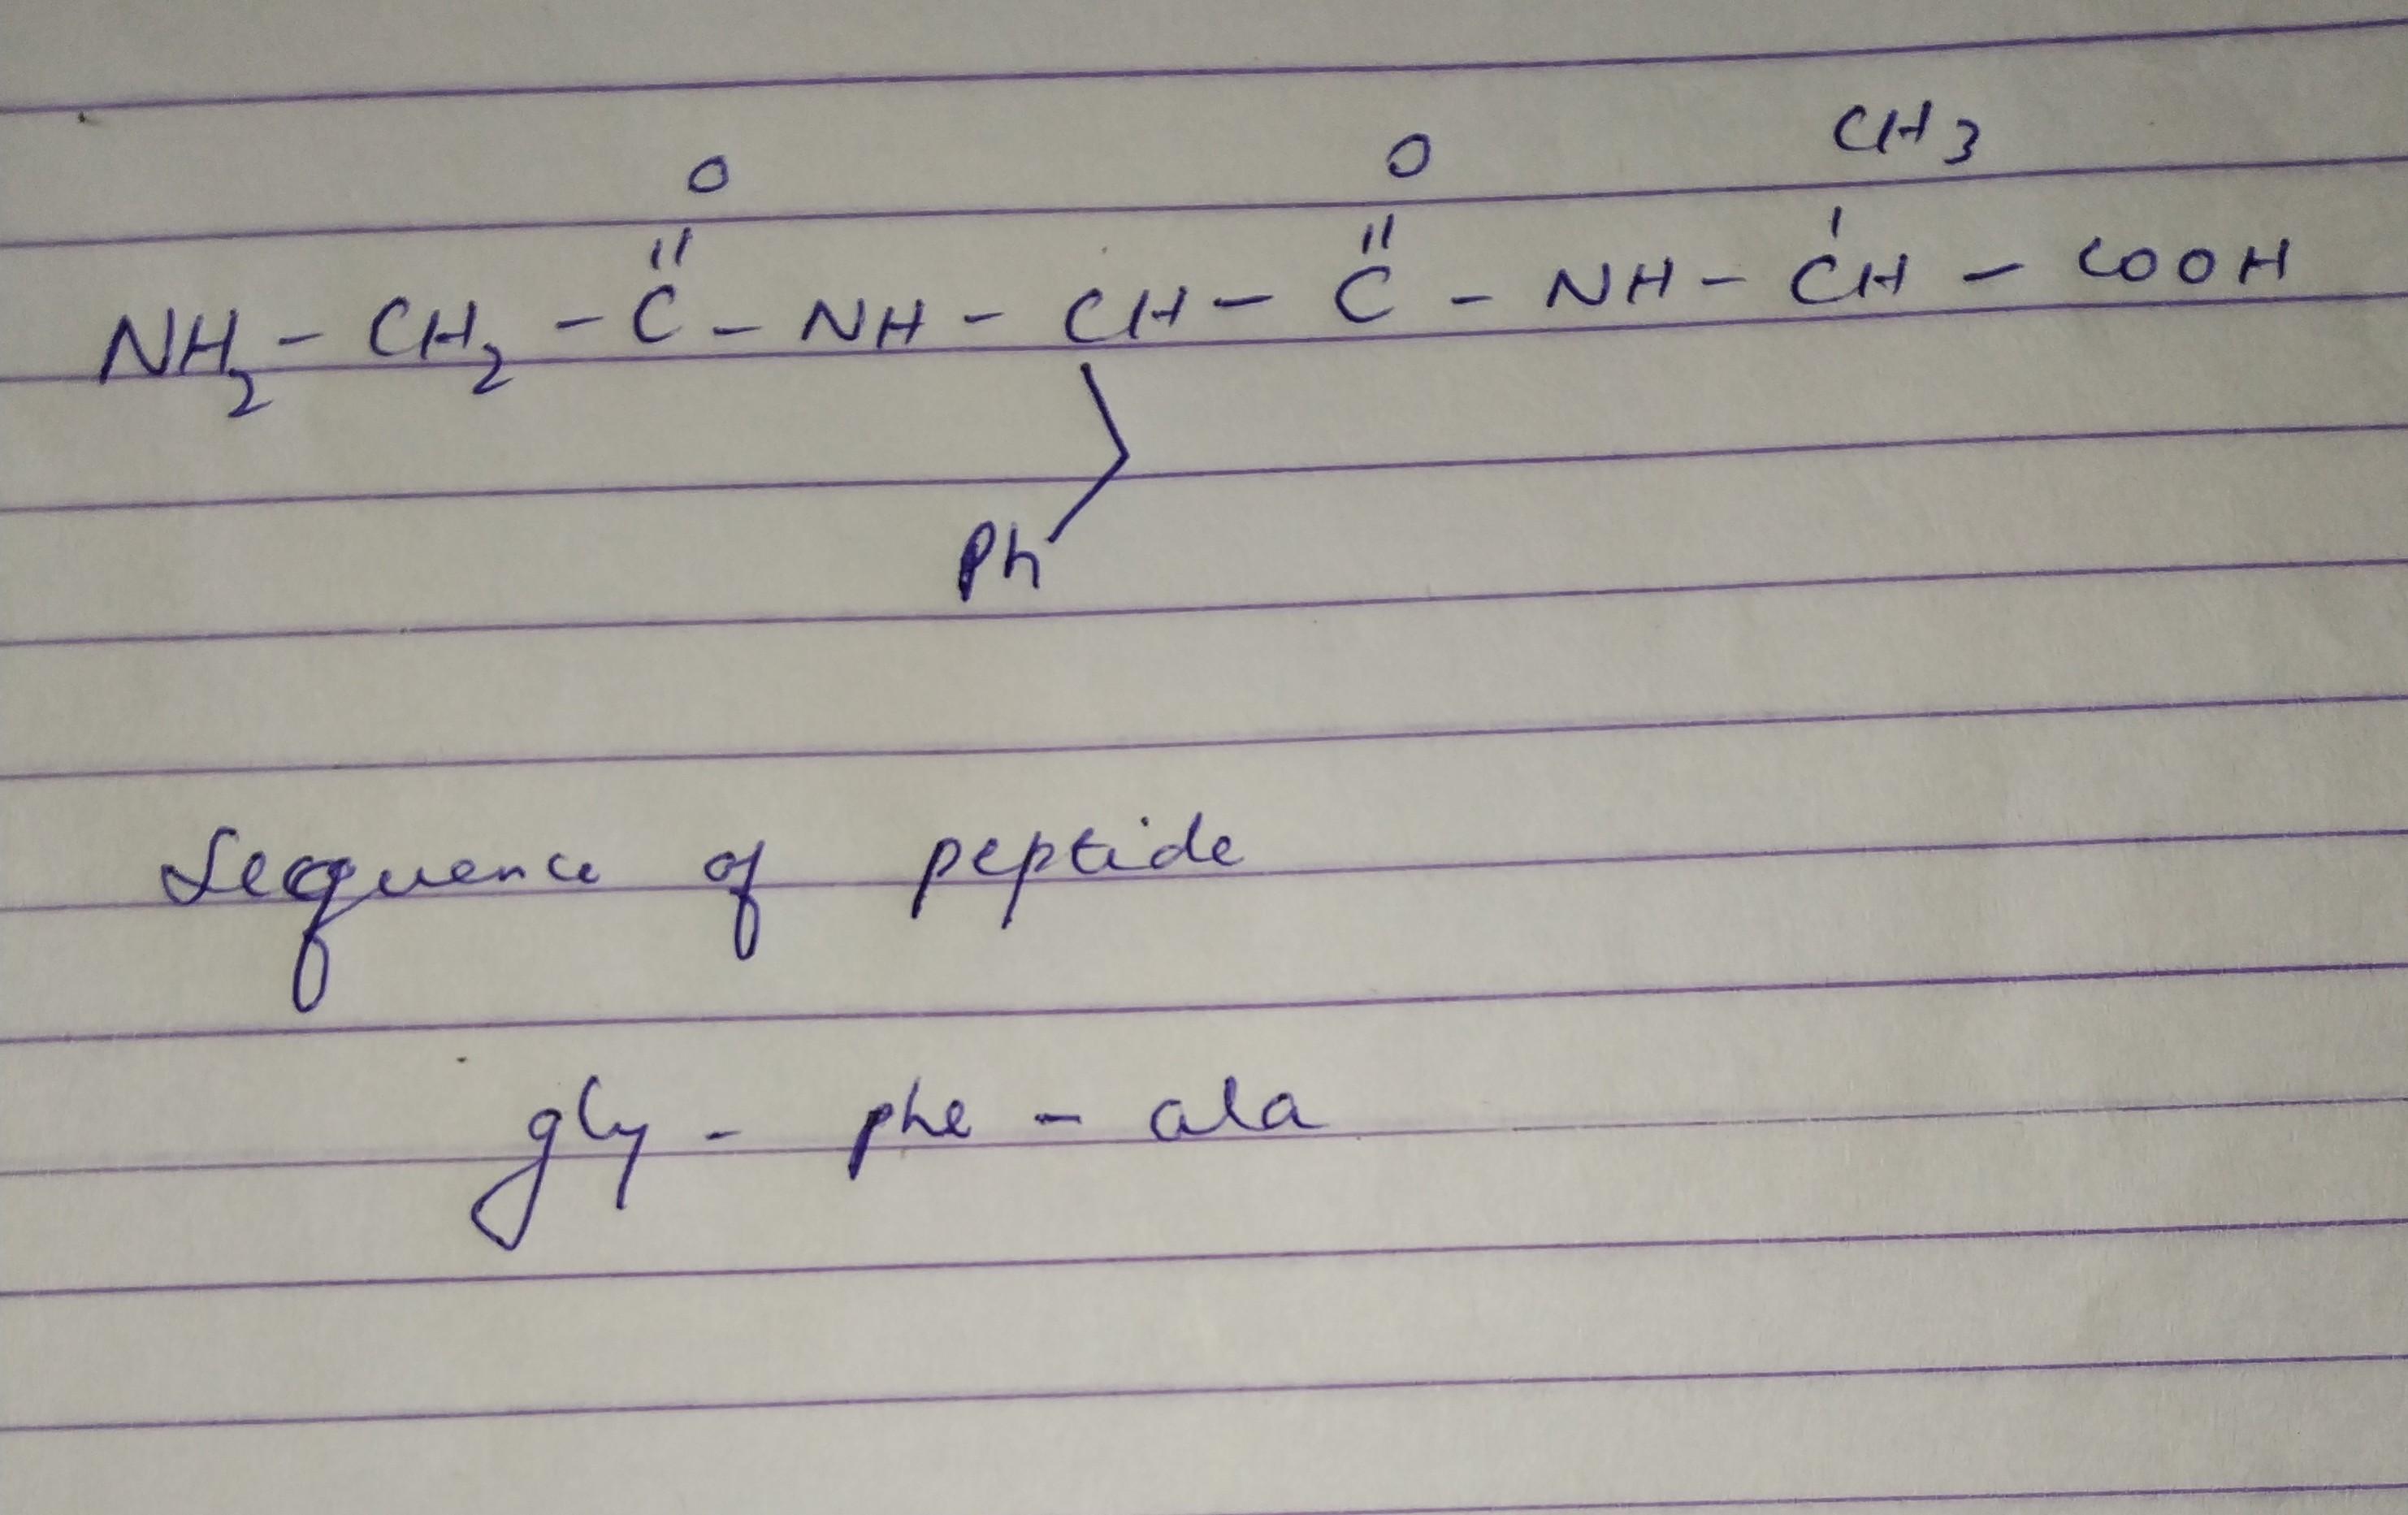 O O CH3
NH2 - CH2 - C - NH - CH - C - NH - CH - COOH
Ph
Sequence of peptide
gly - phe - ala